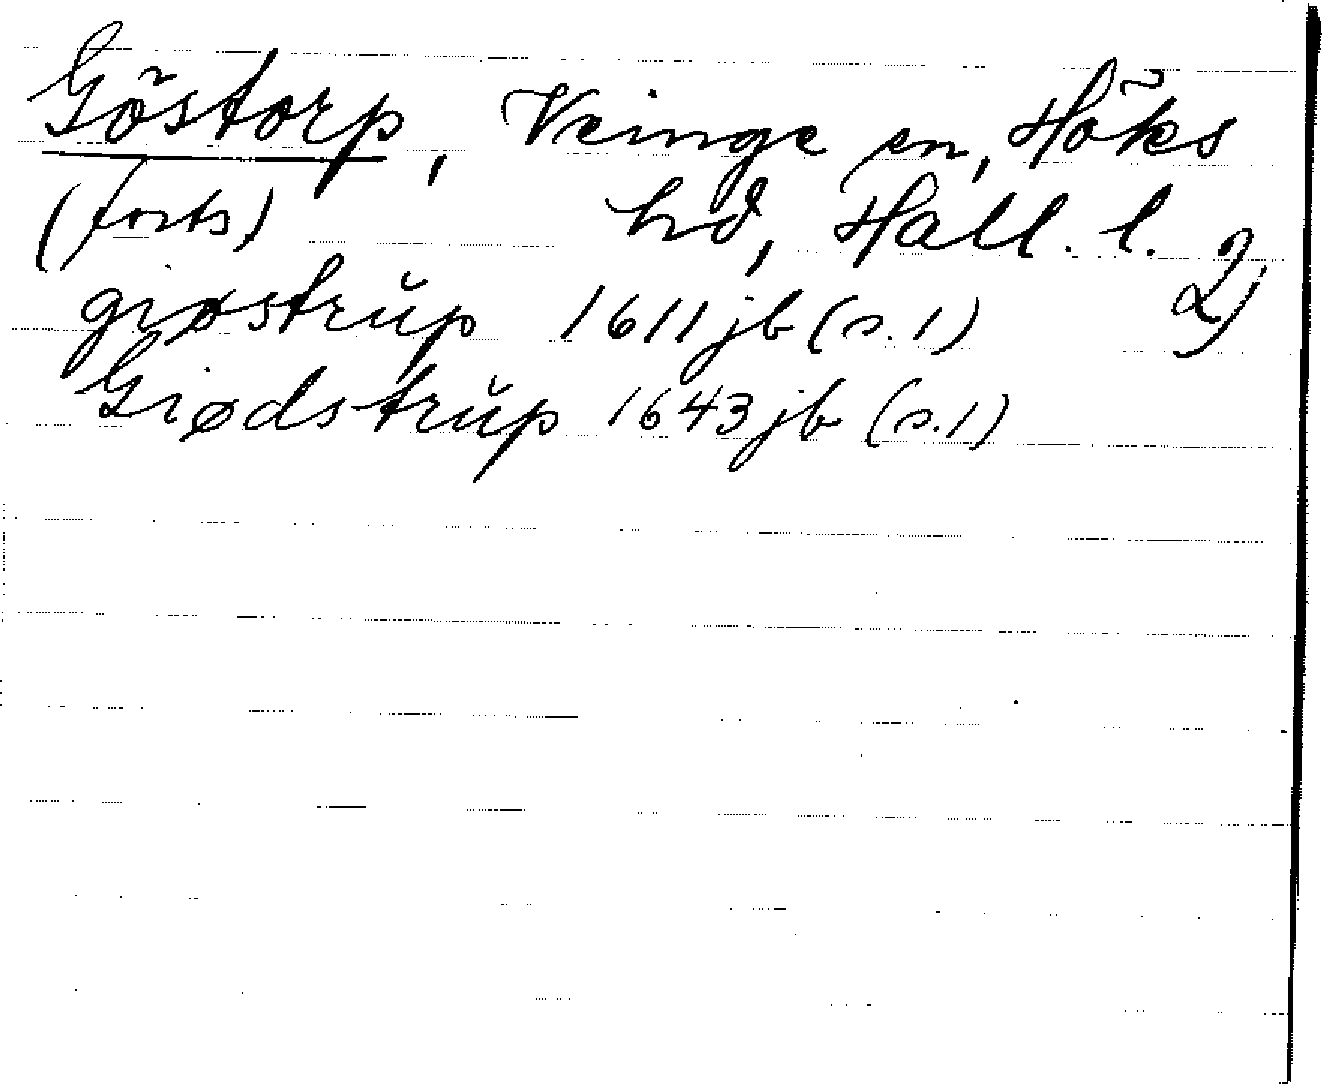 Göstorp, Veinge sn, Höks
(forts) hd, Hall. l. 2)
giøstrŭp 1611 jb (s. 1)
Giødstrŭp 1643 jb (s. 1)